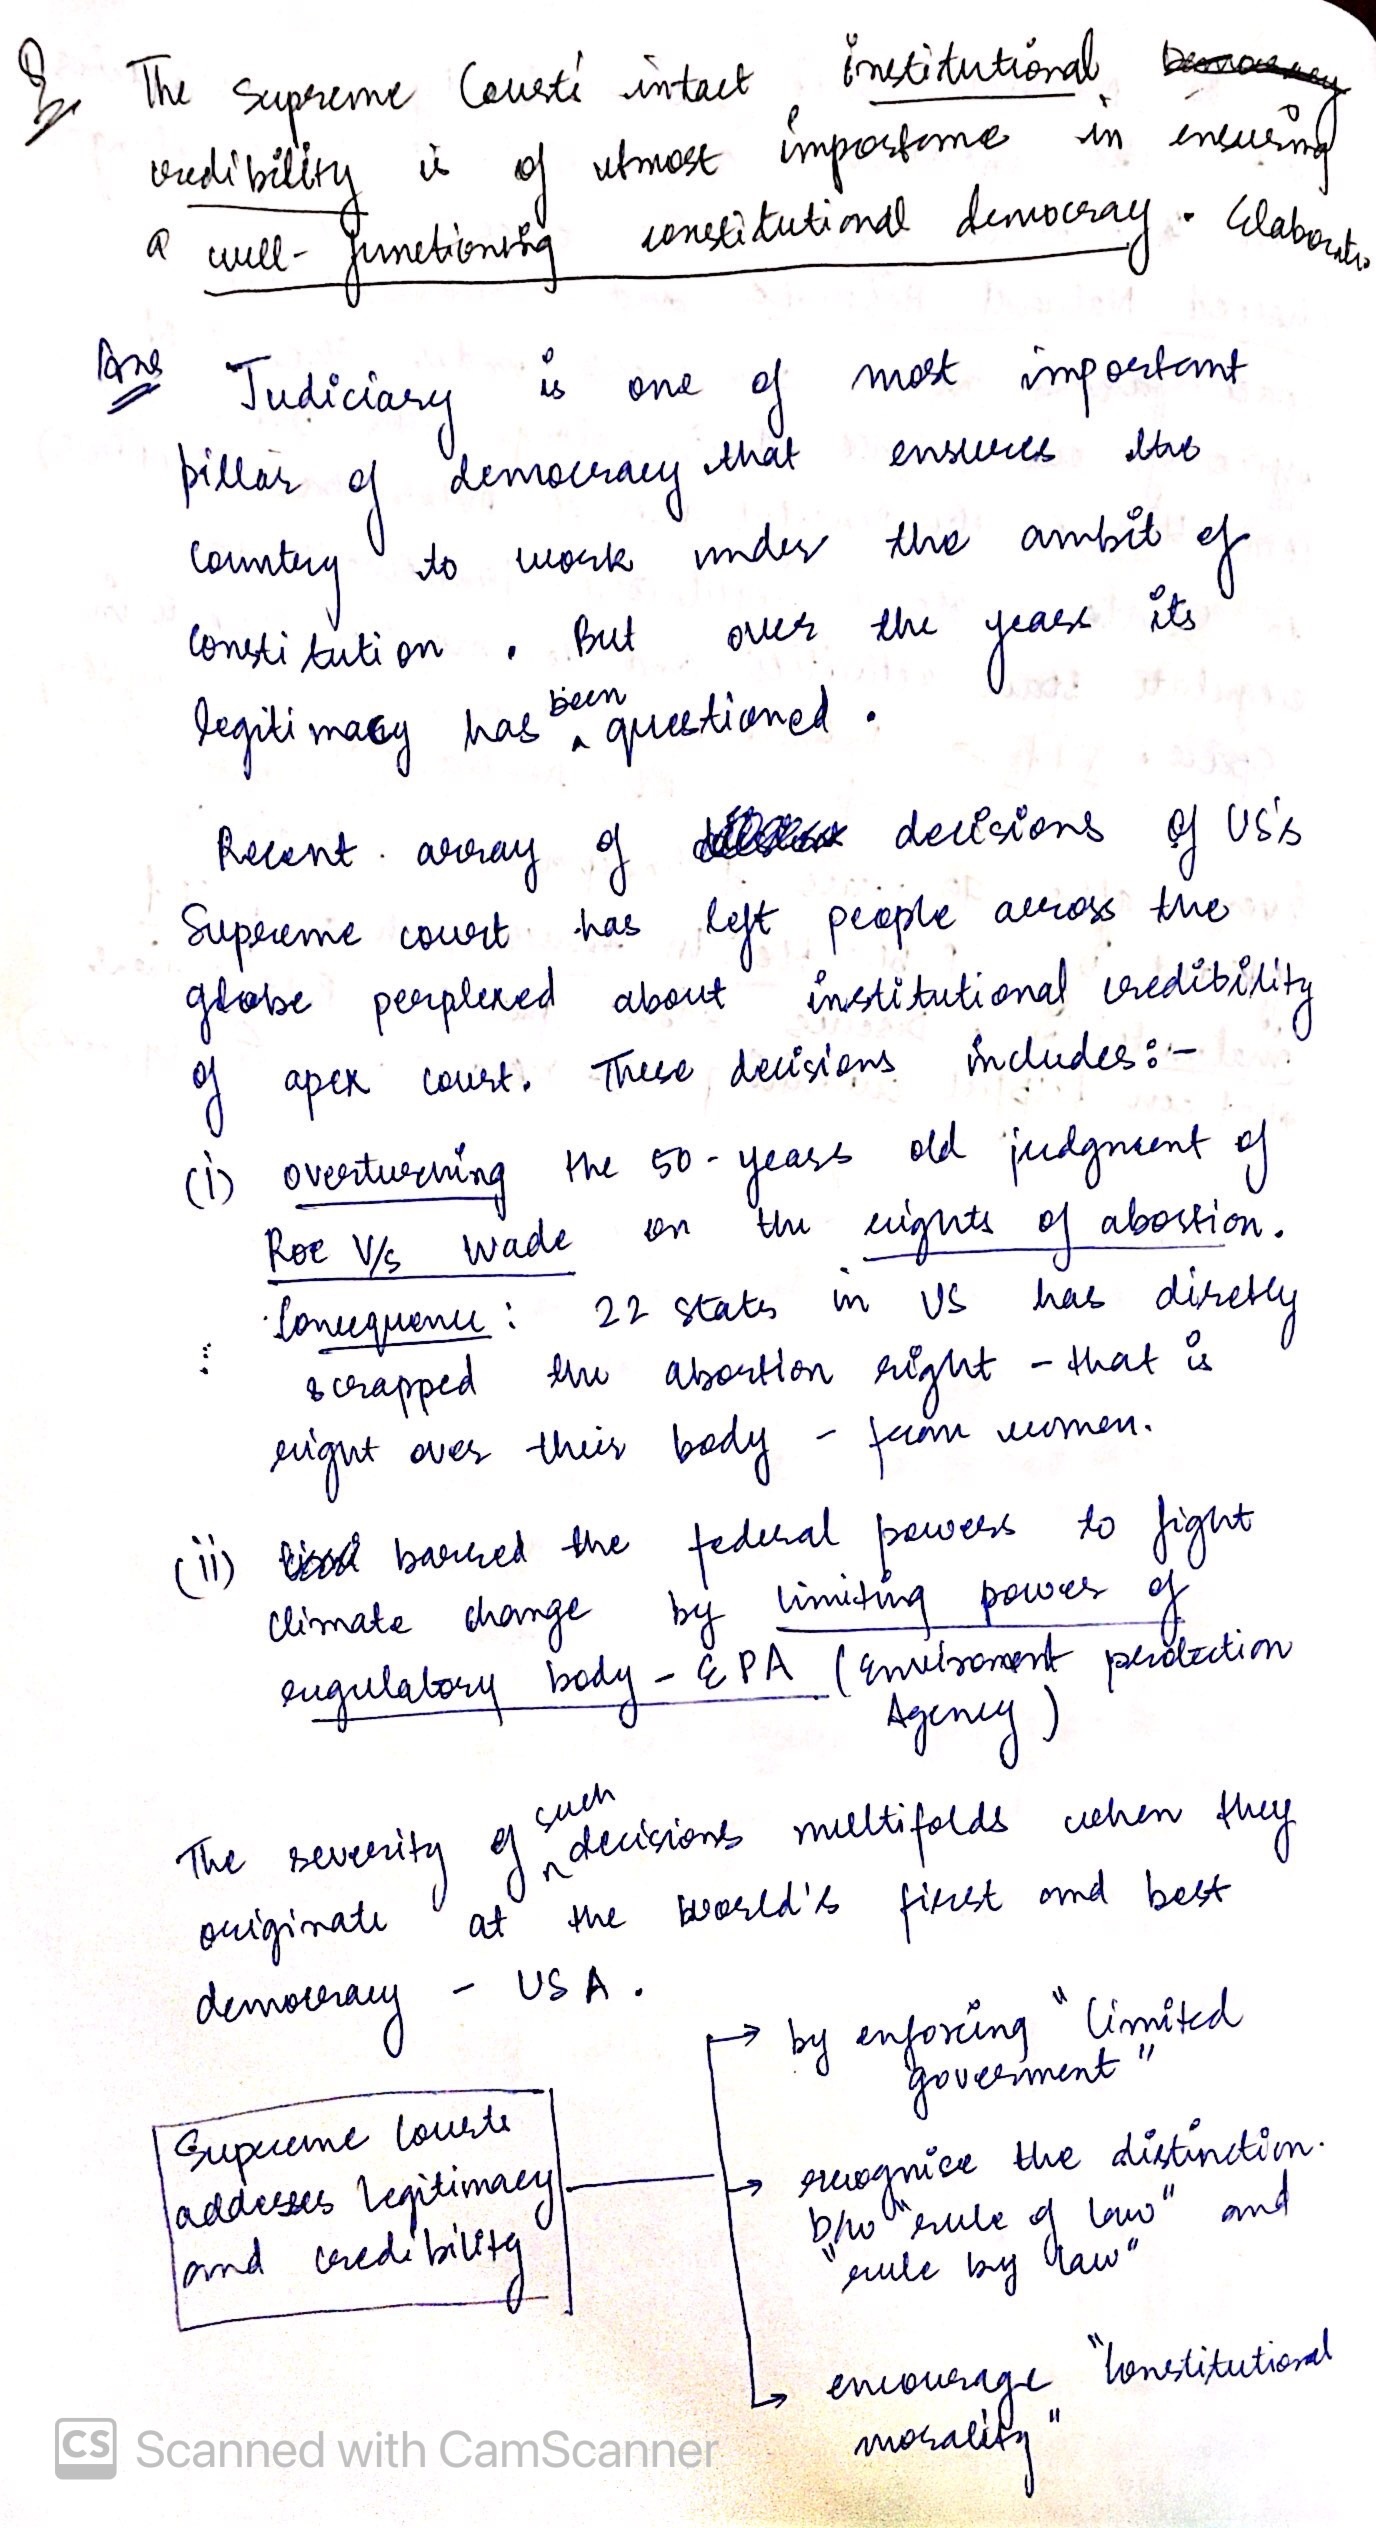 Q. The Supreme Court's intact institutional
credibility is of utmost importance in ensuring
a well-functioning constitutional democray. Elaborate.
Ans Judiciary is one of most important
pillar of democracy that ensures the
country to work under the ambit of
constitution. But over the years its
legitimacy has been questioned.
Recent array of decisions of US's
Supreme court has left people across the
globe perplexed about institutional credibility
of apex court. These decisions includes:-
(i) overturning the 50-years old judgment of
Roe V/s Wade on the rights of abortion.
Consequence: 22 states in US has directly
scrapped the abortion right - that is
right over their body - from women.
(ii) barred the federal powers to fight
climate change by limiting power of
regulatory body - EPA (Enviroment protection
Agency)
The severity of such decisions multifolds when they
originate at the world's first and best
democracy - USA.
Supreme Courts
addresses legitimacy
and credibility
by enforcing "limited
goverment"
recognise the distinction
b/w "rule of law" and
"rule by law"
encourage "Constitutional
morality"
CS Scanned with CamScanner